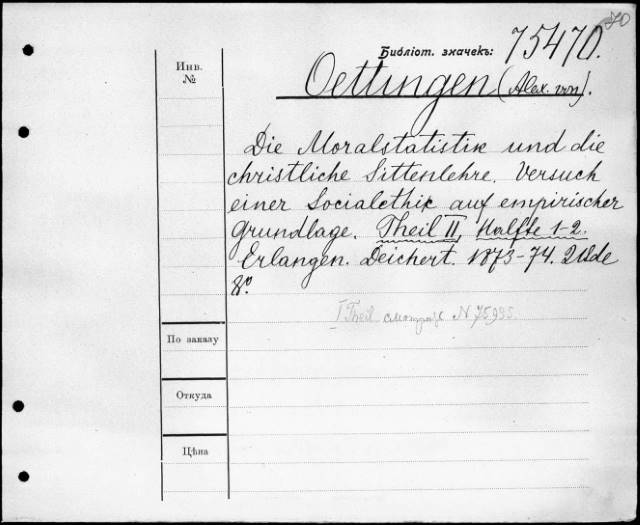 70
Библіот. значекъ: 75470.
Инв.
№
Oettingen (Alex. von).
Die Moralstatistik und die
christliche Sittenlehre. Versuch
einer Socialethik auf empirischer
Grundlage. Theil II, Hälfte 1-2.
Erlangen. Deichert. 1873-74. 2 Bde
8º.
I Theil смотри N 75935.
По заказу
Откуда
Цѣна